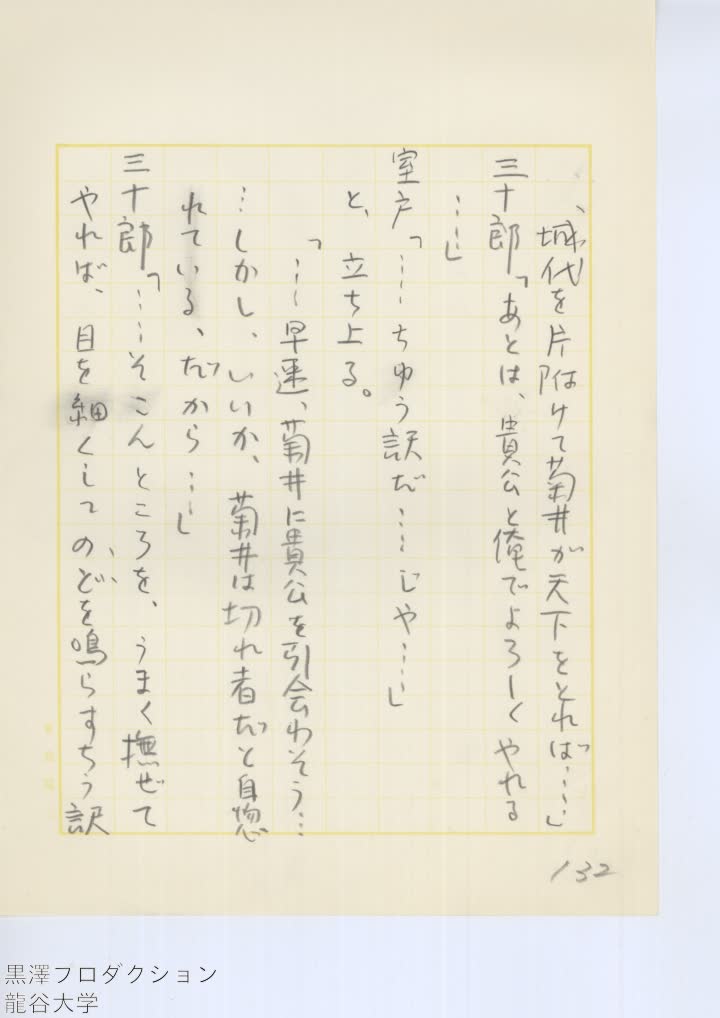 、城代を片附けて菊井が天下をとれば……」
三十郎「あとは、貴公と俺でよろしくやれる
……」
室戸「……ちゆう訳だ……じや……」
と、立ち上る。
「……早速、菊井に貴公を引会わそう…
…しかし、いいか、菊井は切れ者だと自惚
れている、だから……」
三十郎「……そこんところを、うまく撫ぜて
やれば、目を細くしてのどを鳴らすちう訳
132
黒澤プロダクション
龍谷大学